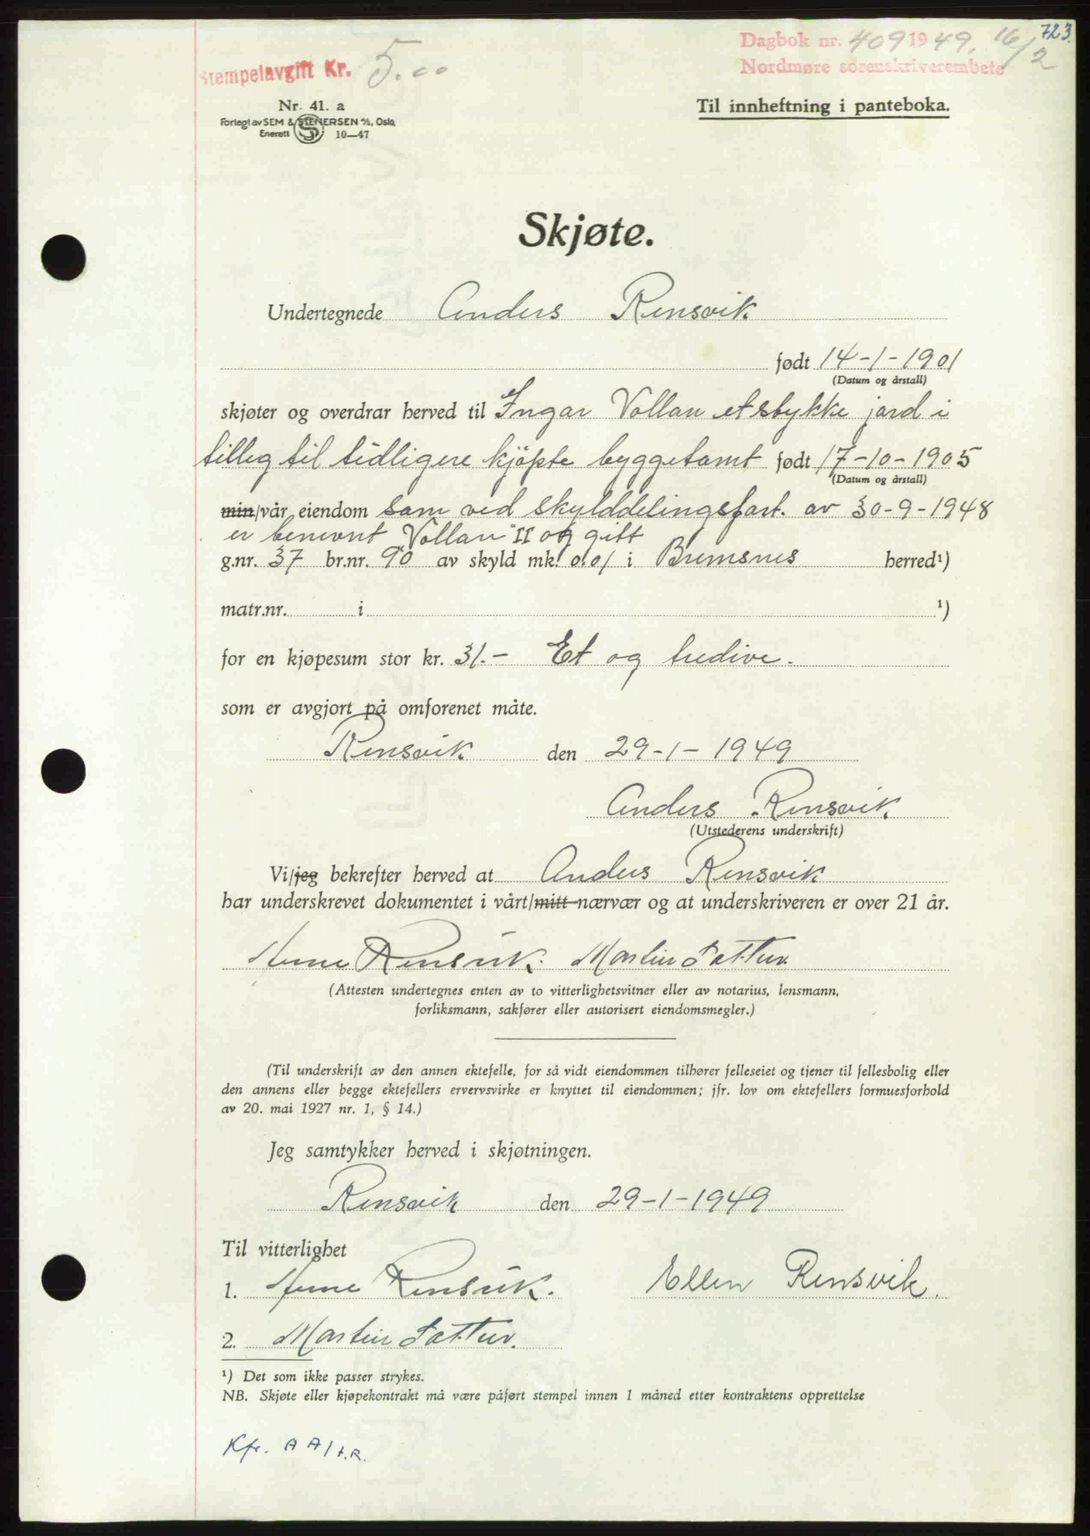 723.
Dagbok nr. 409 1949. 16/2
Nordmøre sorenskriverembete
Stempelavgift Kr. 5.00
Nr. 41. a
Forlegt av SEM & STENERSEN A/S, Oslo.
Enerett S 10—47
Til innheftning i panteboka.
Skjøte.
Undertegnede Anders Rensvik
født 14-1-1901
(Datum og årstall)
skjøter og overdrar herved til Ingar Vollan et stykke jord i
tilleg til tidligere kjøpte byggetomt født 17-10-1905
(Datum og årstall)
min/vår eiendom som ved skylddelingsfort. av 30-9-1948
er benevnt Vollan II og gitt
g.nr. 37 br.nr. 90 av skyld mk. 0.01 i Bremsnes herred¹)
matr.nr. i ¹)
for en kjøpesum stor kr. 31.- Et og tredive.
som er avgjort på omforenet måte.
Rensvik den 29-1-1949
Anders Rensvik
(Utstederens underskrift)
Vi/jeg bekrefter herved at Anders Rensvik
har underskrevet dokumentet i vårt/mitt nærvær og at underskriveren er over 21 år.
Rensvik. Martin
(Attesten undertegnes enten av to vitterlighetsvitner eller av notarius, lensmann,
forliksmann, sakfører eller autorisert eiendomsmegler.)
(Til underskrift av den annen ektefelle, for så vidt eiendommen tilhører felleseiet og tjener til fellesbolig eller
den annens eller begge ektefellers ervervsvirke er knyttet til eiendommen; jfr. lov om ektefellers formuesforhold
av 20. mai 1927 nr. 1, § 14.)
Jeg samtykker herved i skjøtningen.
Rensvik den 29-1-1949
Til vitterlighet
1. Rensvik. Ellen Rensvik.
2. Martin
¹) Det som ikke passer strykes.
NB. Skjøte eller kjøpekontrakt må være påført stempel innen 1 måned etter kontraktens opprettelse
Kfr. AA/t.R.